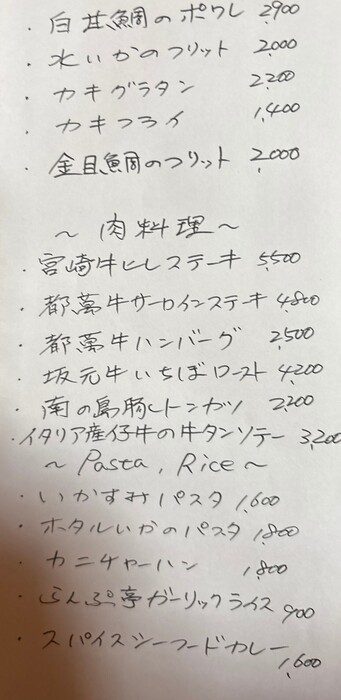 ・白甘鯛のポワレ 2900
・水いかのフリット 2,000
・カキグラタン 2,200
・カキフライ 1,400
・金目鯛のフリット 2,000
～肉料理～
・宮崎牛ヒレステーキ 5,500
・都萬牛サーロインステーキ 4,800
・都萬牛ハンバーグ 2,500
・坂元牛いちぼロースト 4,200
・南の島豚ヒレトンカツ 2,200
・イタリア産仔牛の牛タンソテー 3,200
～Pasta, Rice～
・いかすみパスタ 1,600
・ホタルいかのパスタ 1,800
・カニチャーハン 1,800
・らんぷ亭ガーリックライス 900
・スパイスシーフードカレー 1,600